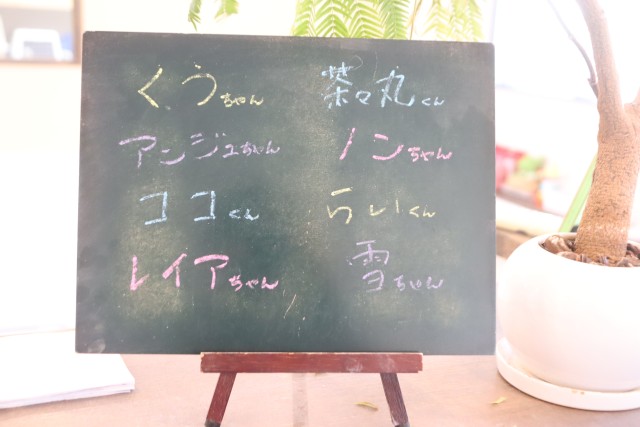 くうちゃん
茶々丸くん
アンジュちゃん
ノンちゃん
ココくん
らいくん
レイアちゃん
雪ちゃん